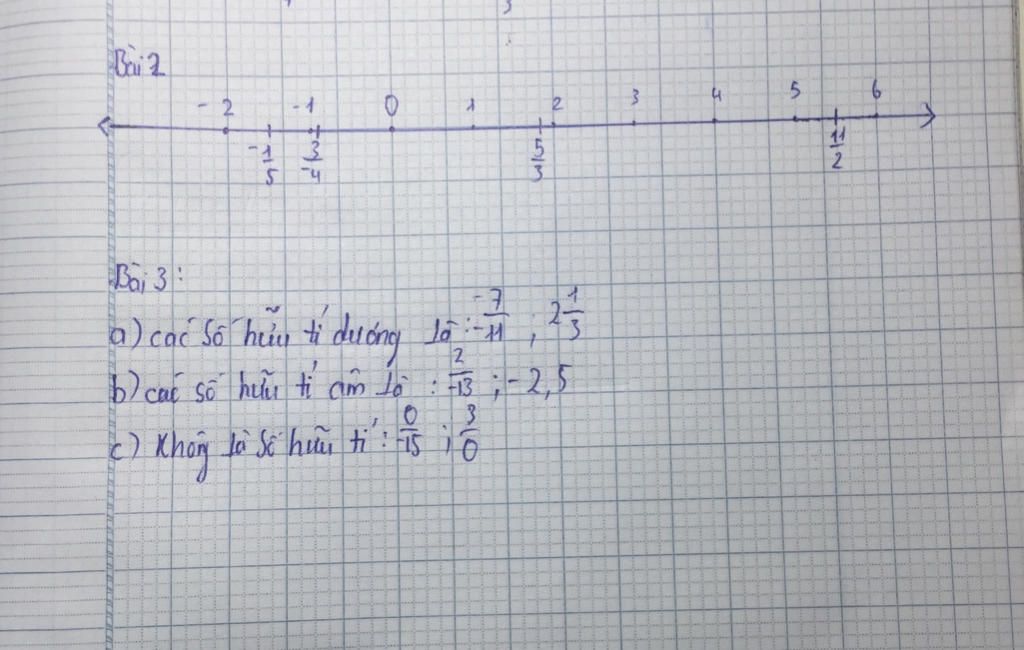 Bài 2
-2 -1 0 1 2 3 4 5 6
-1/5 3/-4 5/3 11/2
Bài 3:
a) các số hữu tỉ dương là: -7/-11 ; 2 1/3
b) các số hữu tỉ âm là : 2/-13 ; -2,5
c) Không là số hữu tỉ : 0/-15 ; 3/0